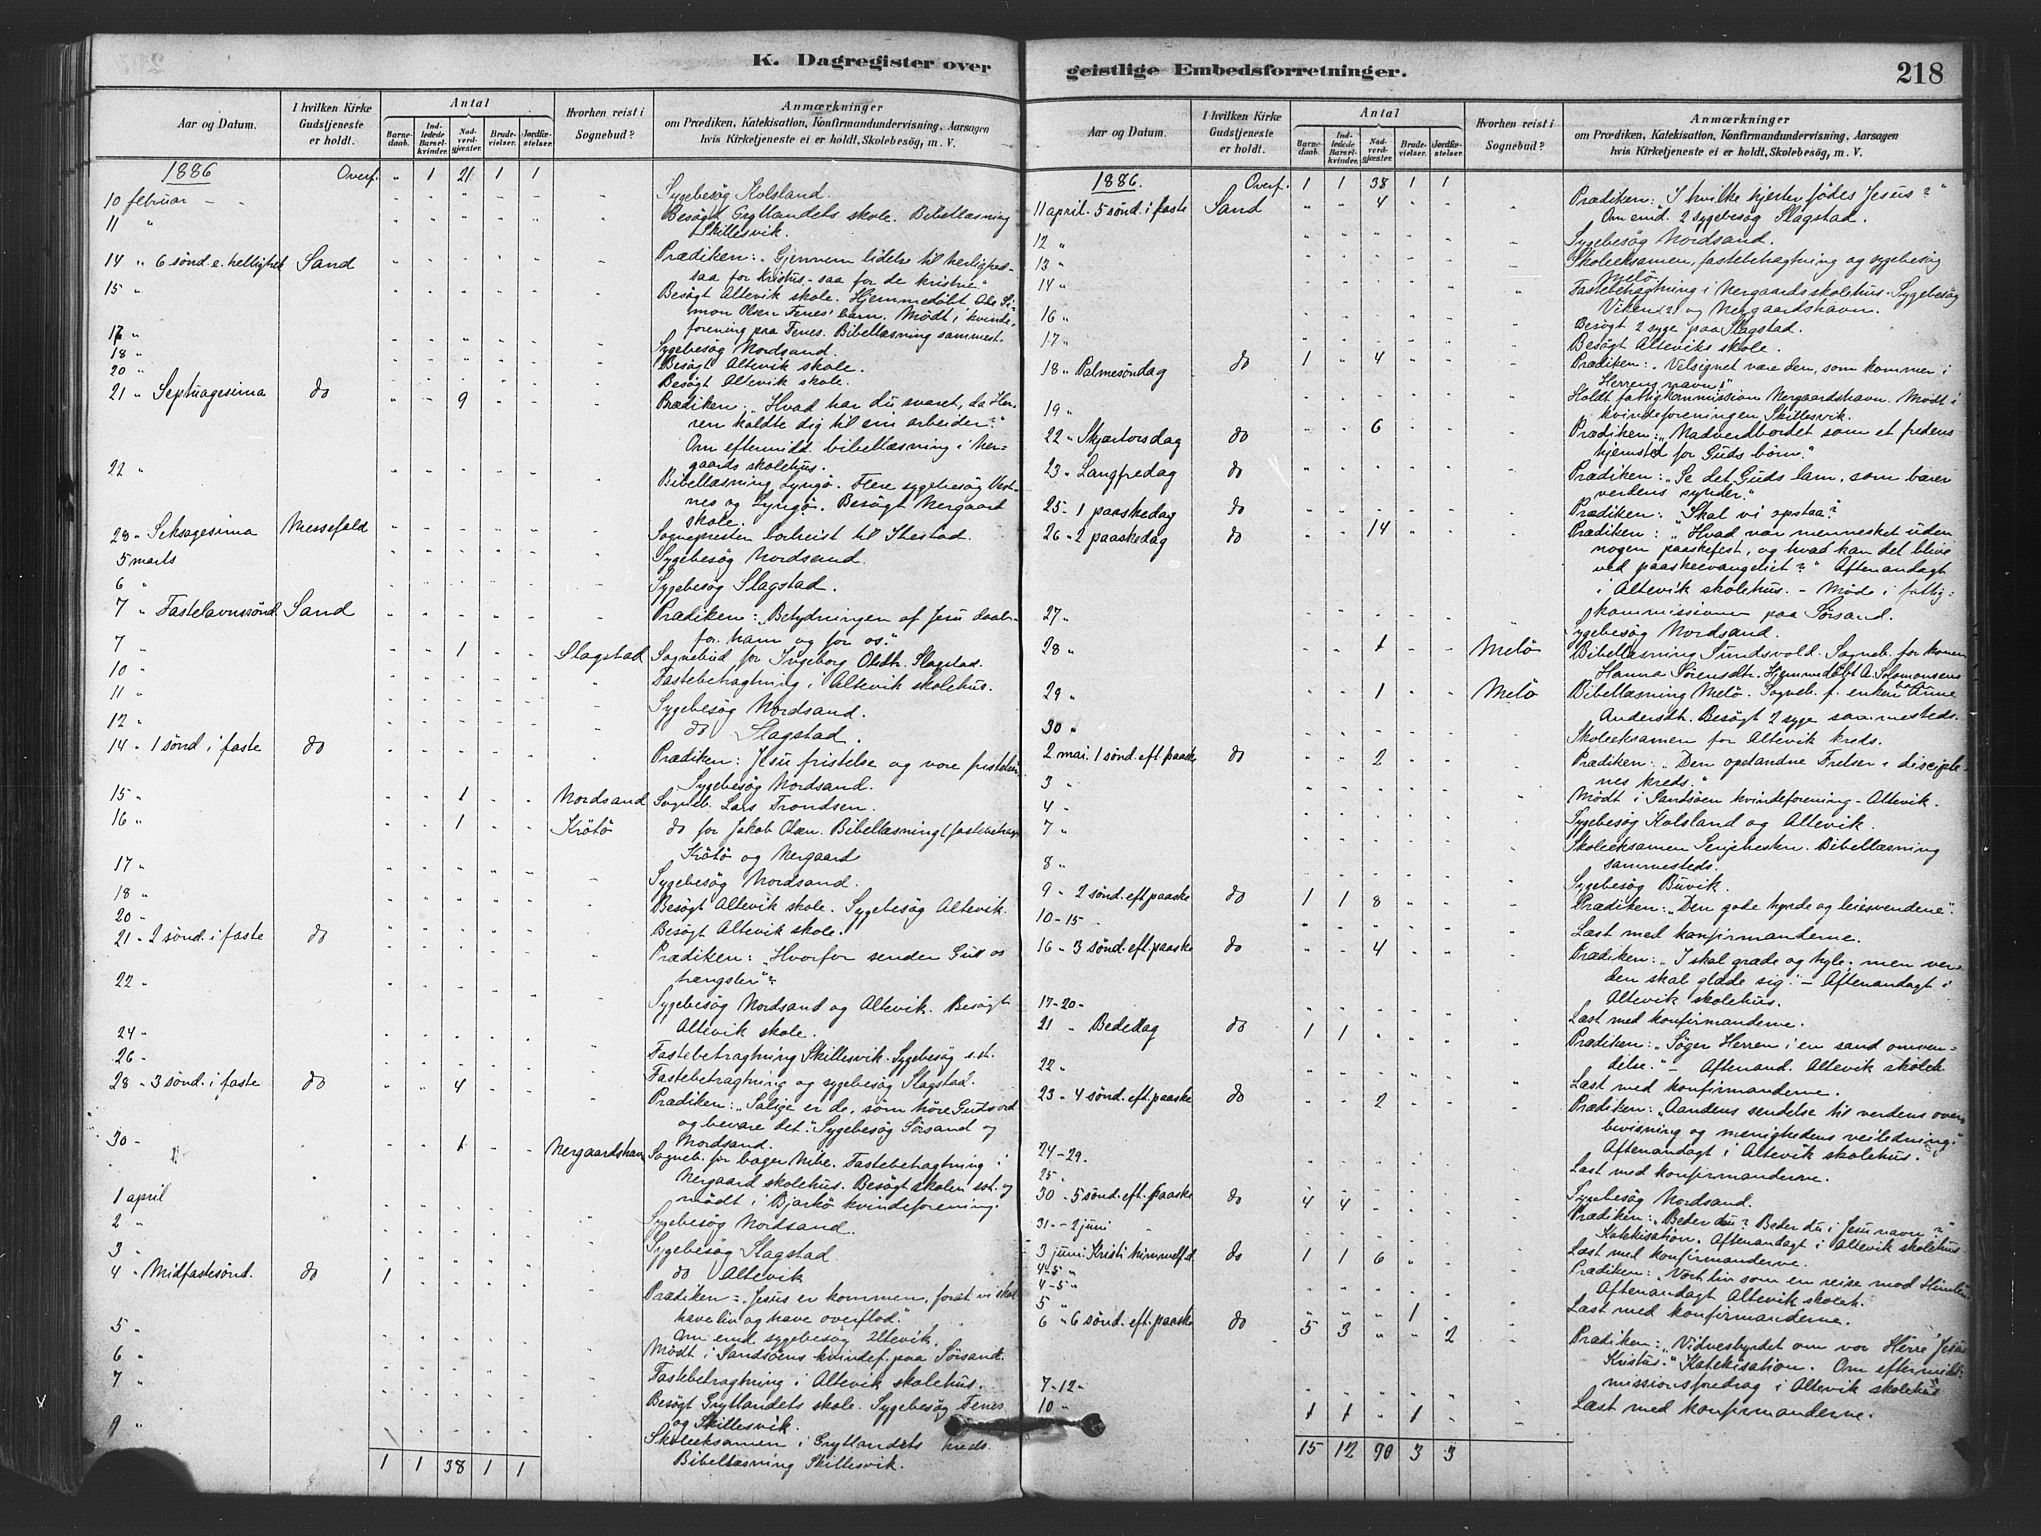 K. Dagregister over
Aar og Datum.
I hvilken Kirke Gudstjeneste er holdt.
Antal
Barnedaab.
Indledede Barselkvinder.
Nadverdgjæster.
Brudevielser.
Jordfæstelser.
Hvorhen reist i Sognebud?
Anmærkninger
om Prædiken, Katekisation, Konfirmandundervisning, Aarsagen
hvis Kirketjeneste ei er holdt, Skolebesög, m. V.
1886 Overf. " 1 21 1 1
10 februar Sygebesøg Kolsland.
11 " Besøgt Gryllandets skole. Bibellæsning
Skillesvik.
14 " 6 sönd. e. hellig Sand Prædiken: „Gjennem lidelse til herlighed
saa for Kristus – saa for de kristne"
15 " Besøgt Altevik skole. Hjemmedøbt Ole Si-
mon Olsen Fenes' barn. Mødt i kvinde-
forening paa Fenes. Bibellæsning sammest.
17 " Sygebesøg Nordsand.
18 " Besøgt Altevik skole.
20 " Besøgt Altevik skole.
21 " Septuagesima do 9 Prædiken: „Hvad har du svaret, da Her-
ren kaldte dig til sin arbeider?"
Om eftermidd. bibellæsning i Ner-
gaards skolehus.
22 " Bibellæsning Lyngø. Flere sygebesøg
nes og Lyngø. Besøgt Nergaard
skole.
28 " Seksagesima Messefald Sognepresten bortreist til Ibestad.
5 marts Sygebesøg Nordsand.
6 " Sygebesøg Slagstad.
7 " Fastelavnssönd. Sand Prædiken: „Betydningen af Jesu daab
for ham og for os."
7 " 1 Slagstad Sognebud for Ingeborg Olsdtr. Slagstad.
10 " Fastebetragtning i Altevik skolehus.
11 " Sygebesøg Nordsand.
12 " do Slagstad.
14 " 1 sönd i faste do Prædiken: Jesu fristelse og vore fristelser
Sygebesøg Nordsand.
15 " 1 Nordsand Sogneb. Lars Trondsen.
16 " 1 Krötö do for Jakob Olsen. Bibellæsning (fastebetragt.
Krötö og Nergaard
17 " Sygebesøg Nordsand.
18 " Besøgt Altevik skole. Sygebesøg Altevik.
20 " Besøgt Altevik skole.
21 " 2 sönd. i faste do Prædiken: „Hvorfor sender Gud os
trængsler"?
22 " Sygebesøg Nordsand og Altevik. Besøgt
Altevik skole.
24 " Fastebetragtning Skillesvik. Sygebesøg s.st.
26 " Fastebetragtning og sygebesøg Slagstad.
28 " 3 sönd. i faste do " " 4 Prædiken: „Salige er de, som høre Guds ord
og bevare det." Sygebesøg Sörsand og
Nordsand.
30 " 1 Nergaardshavn Sogneb. for bager Nibe. Fastebetragtning i
Nergaard skolehus. Besøgt skolen sst. og
mødt i Bjarkö kvindeforening.
1 april Sygebesøg Nordsand.
2 " Sygebesøg Slagstad
3 " do Altevik
4 " Midfastesönd. do 1 Prædiken: „Jesus er kommen, forat vi skal
have liv og have overflod."
Om emd. sygebesøg Altevik.
5 " Mødt i Sandsöens kvindef. paa Sörsand.
6 " Fastebetragtning i Altevik skolehus.
7 " Besøgt Gryllandets skole. Sygebesøg Fenes
og Skillesvik.
9 " Skoleeksamen i Gryllandets kreds.
Bibellæsning Skillesvik.
1 1 38 1 1
geistlige Embedsforretninger.
218
Aar og Datum.
I hvilken Kirke Gudstjeneste er holdt.
Antal
Barnedaab.
Indledede Barselkvinder.
Nadverdgjæster.
Brudevielser.
Jordfæstelser.
Hvorhen reist i Sognebud?
Anmærkninger
om Prædiken, Katekisation, Konfirmandundervisning, Aarsagen
hvis Kirketjeneste ei er holdt, Skolebesög, m. V.
1886. Overf. 1 1 38 1 1
11 april. 5 sönd. i faste Sand " " 4 Prædiken: „I hvilke hjerter födes Jesus?"
Om emd. 2 sygebesøg Slagstad.
12 " Sygebesøg Nordsand.
13 " Skoleeksamen, fastebetragtning og sygebesøg
Melö
14 " Fastebetragtning i Nergaards skolehus. Sygebesøg
Viken og Nergaardshavn.
16 " Besøgt 2 syge paa Slagstad.
17 " Besøgt Alteviks skole.
18 " Palmesöndag do 1 " 4 Prædiken: „Velsignet være den, som kommer i
Herrens navn!"
19 " Holdt fattigkommission Nergaardshavn. Mødt i
kvindeforeningen Skillesvik.
22 " Skjærtorsdag do 6 Prædiken: „Nadverdbordet som et fredens
hjemsted for Guds börn."
23 " Langfredag do Prædiken: „Se det Guds lam, som bærer
verdens synder."
25 " 1 paaskedag do Prædiken: „Skal vi opstaa?
26 " 2 paaskedag do 14 Prædiken: „Hvad var mennesket uden
nogen paaskefest, og hvad kan det blive
ved paaskeevangeliet?" Aftenandagt
i Altevik skolehus. – Møde i fattig-
27 " kommissionen paa Sörsand.
Sygebesøg Nordsand.
28 " 1 Melö Bibellæsning Sundsvold. Sogneb. for konen
Hanna Sørensdtr. Hjemmedøbt A. Salomonsens barn
29 " 1 Melö Bibellæsning Melö. Sogneb. f. enken Anne
Andersdt. Besøgt 2 syge sammesteds.
30 " Skoleeksamen for Altevik kreds.
2 mai. 1 sönd. eft. paaske do 2 Prædiken: „Den opstandne Frelser i disciple-
nes kreds."
3 " Mødt i Sandsöen kvindeforening – Altevik.
4 " Sygebesøg Kolsland og Altevik.
7 " Skoleeksamen Senjehesten. Bibellæsning
sammesteds.
8 " Sygebesøg Buvik.
9 " 2 sönd. eft. paaske do 1 1 8 Prædiken: „Den gode hyrde og leiesvendene".
10–15 " Læst med konfirmanderne.
16 " 3 sönd. eft. paaske do 4 Prædiken: „I skal græde og hyle, men ver-
den skal glæde sig." – Aftenandagt i
Altevik skolehus.
17–20 " Læst med konfirmanderne.
21 " Bededag do 1 1 Prædiken: „Söger Herren i en sand omven-
delse." – Aftenand. Altevik skoleh.
22 " Læst med konfirmanderne.
23 " 4 sönd. eft. paaske do 2 Prædiken: „Aandens sendelse til verdens over-
bevisning og menighedens veiledning."
Aftenandagt i Altevik skolehus.
24–29. Læst med konfirmanderne.
25 " Sygebesøg Nordsand.
30 " 5 sönd. eft. paaske do 4 4 Prædiken: „Beder du? Beder du i Jesu navn?"
Katekisation. Aftenandagt i Altevik skolehus.
31 – 2 juni Læst med konfirmanderne.
3 juni. Kristi himmelf.d. do 1 1 6 Prædiken: „Vort liv som en reise mod Himlen
Aftenandagt Altevik skoleh.
4–5 "
4–5 " Læst med konfirmanderne.
5 " 1
6 " 6 sönd. eft. paaske do 5 3 " " 2 Prædiken: „Vidnesbyrdet om vor Herre Jesus
Kristus." Katekisation. Om eftermidd.
missionsforedrag i Altevik skolehus
7–12 " Læst med konfirmanderne.
10 " 1 1 " 1
15 12 90 3 3